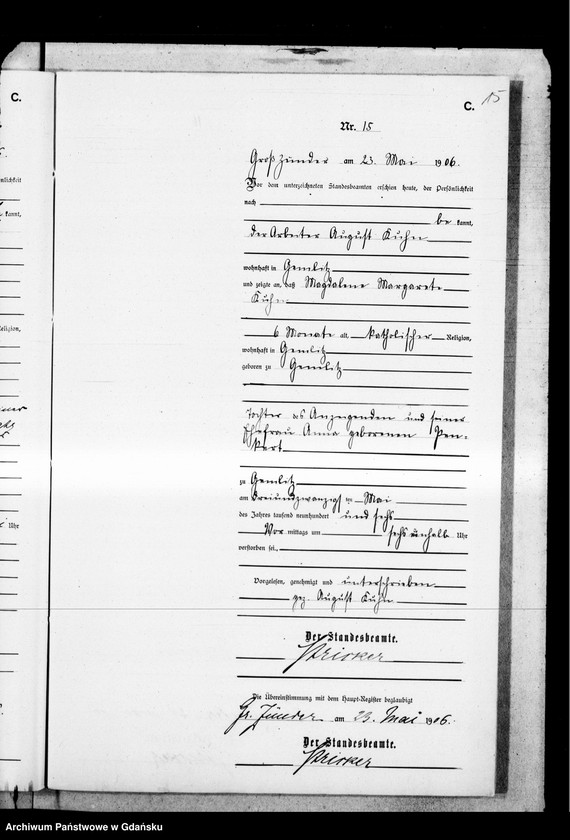 C.
C. 15
Nr. 15
Groß Zünder am 23. Mai 1906.
Vor dem unterzeichneten Standesbeamten erschien heute, der Persönlichkeit
nach
be kannt,
der Arbeiter August Kuhn
wohnhaft in Gemlitz
und zeigte an, daß Magdalene Margarete
Kuhn
6 Monate alt, katholischer Religion,
wohnhaft in Gemlitz
geboren zu Gemlitz
Tochter des Anzeigenden und seiner
Ehefrau Anna geborenen
zu Gemlitz
am dreiundzwanzigsten Mai
des Jahres tausend neunhundert und sechs
Vor mittags um sechs einhalb Uhr
verstorben sei.
Vorgelesen, genehmigt und unterschrieben
gez. August Kuhn
Der Standesbeamte.
Die Übereinstimmung mit dem Haupt-Register beglaubigt
Gr. Zünder am 23. Mai 1906.
Der Standesbeamte.
Archiwum Państwowe w Gdańsku